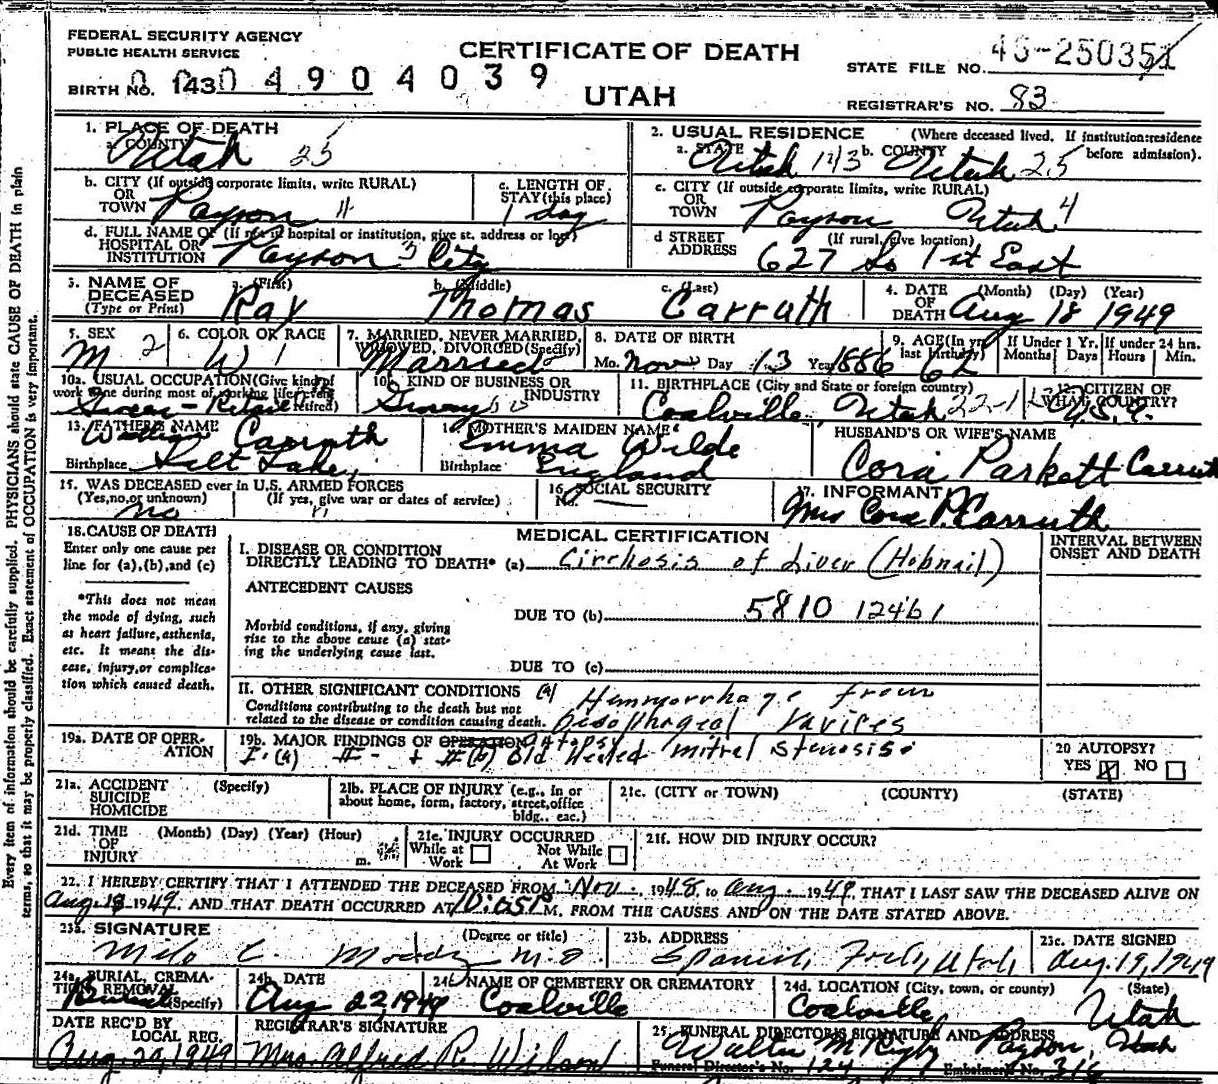 FEDERAL SECURITY AGENCY
PUBLIC HEALTH SERVICE
CERTIFICATE OF DEATH
UTAH
BIRTH NO. 1430 4904039
STATE FILE NO. 46-250351
REGISTRAR'S NO. 83
1. PLACE OF DEATH
a. COUNTY Utah 25
2. USUAL RESIDENCE (Where deceased lived. If institution: residence before admission).
a. STATE Utah 143 b. COUNTY Utah 25
b. CITY (If outside corporate limits, write RURAL) OR TOWN Payson 4
c. LENGTH OF STAY (this place) 1 day
c. CITY (If outside corporate limits, write RURAL) OR TOWN Payson Utah 4
d. FULL NAME OF (If not in hospital or institution, give st. address or loc.) HOSPITAL OR INSTITUTION Payson 3 City
d STREET ADDRESS (If rural, give location) 627 So 1st East
3. NAME OF DECEASED (Type or Print)
a. (First) Ray b. (Middle) Thomas c. (Last) Carruth
4. DATE OF DEATH (Month) (Day) (Year) Aug 18 1949
5. SEX M 2
6. COLOR OR RACE W 1
7. MARRIED, NEVER MARRIED, WIDOWED, DIVORCED (Specify) Married
8. DATE OF BIRTH Mo. Nov Day 13 Year 1886
9. AGE (In yrs. last birthday) 62
If Under 1 Yr. Months Days
If under 24 hrs. Hours Min.
10a. USUAL OCCUPATION (Give kind of work done during most of working life, even if retired) Retired
10b. KIND OF BUSINESS OR INDUSTRY
11. BIRTHPLACE (City and State or foreign country) Coalville, Utah
12. CITIZEN OF WHAT COUNTRY? U.S.A.
13. FATHER'S NAME William Carruth
Birthplace Salt Lake,
14. MOTHER'S MAIDEN NAME Emma Wilde
Birthplace England
HUSBAND'S OR WIFE'S NAME
Cora Parkett Carruth
15. WAS DECEASED ever in U.S. ARMED FORCES
(Yes, no, or unknown) (If yes, give war or dates of service)
no
16. SOCIAL SECURITY No.
17. INFORMANT
Mrs Cora P. Carruth
18. CAUSE OF DEATH
Enter only one cause per line for (a), (b), and (c)
*This does not mean the mode of dying, such as heart failure, asthenia, etc. It means the disease, injury, or complication which caused death.
MEDICAL CERTIFICATION
INTERVAL BETWEEN ONSET AND DEATH
I. DISEASE OR CONDITION DIRECTLY LEADING TO DEATH* (a) Cirrhosis of Liver (Hobnail)
ANTECEDENT CAUSES
DUE TO (b) 5810 12461
Morbid conditions, if any, giving rise to the above cause (a) stating the underlying cause last.
DUE TO (c)
II. OTHER SIGNIFICANT CONDITIONS (a) Hemmorrhage from
Conditions contributing to the death but not related to the disease or condition causing death. Oesophageal Varices
19a. DATE OF OPERATION
19b. MAJOR FINDINGS OF OPERATION autopsy
I. (a) II - + II (b) Old Healed mitral stenosis.
20 AUTOPSY?
YES X NO
21a. ACCIDENT SUICIDE HOMICIDE (Specify)
21b. PLACE OF INJURY (e.g., in or about home, form, factory, street, office bldg., eac.)
21c. (CITY or TOWN) (COUNTY) (STATE)
21d. TIME OF INJURY (Month) (Day) (Year) (Hour) m.
21e. INJURY OCCURRED
While at Work Not While At Work
21f. HOW DID INJURY OCCUR?
22. I HEREBY CERTIFY THAT I ATTENDED THE DECEASED FROM Nov. 1948 to Aug. 1949, THAT I LAST SAW THE DECEASED ALIVE ON
Aug. 18 1949. AND THAT DEATH OCCURRED AT 10:05 P M, FROM THE CAUSES AND ON THE DATE STATED ABOVE.
23a. SIGNATURE (Degree or title)
Milo C. Moody M.D.
23b. ADDRESS
Spanish Fork, Utah,
23c. DATE SIGNED
Aug. 19, 1949
24a. BURIAL, CREMATION, REMOVAL (Specify) Burial
24b. DATE
Aug 22, 1949
24c. NAME OF CEMETERY OR CREMATORY
Coalville
24d. LOCATION (City, town, or county) (State)
Coalville Utah
DATE REC'D BY LOCAL REG.
Aug 29, 1949
REGISTRAR'S SIGNATURE
Mrs. Alfred R. Wilson
25. FUNERAL DIRECTOR'S SIGNATURE AND ADDRESS
Walter M Rigby Payson, Utah
Funeral Director's No. 124 Embalmer's No. 316
Every item of information should be carefully supplied. PHYSICIANS should state CAUSE OF DEATH in plain
terms, so that it may be properly classified. Exact statement of OCCUPATION is very important.